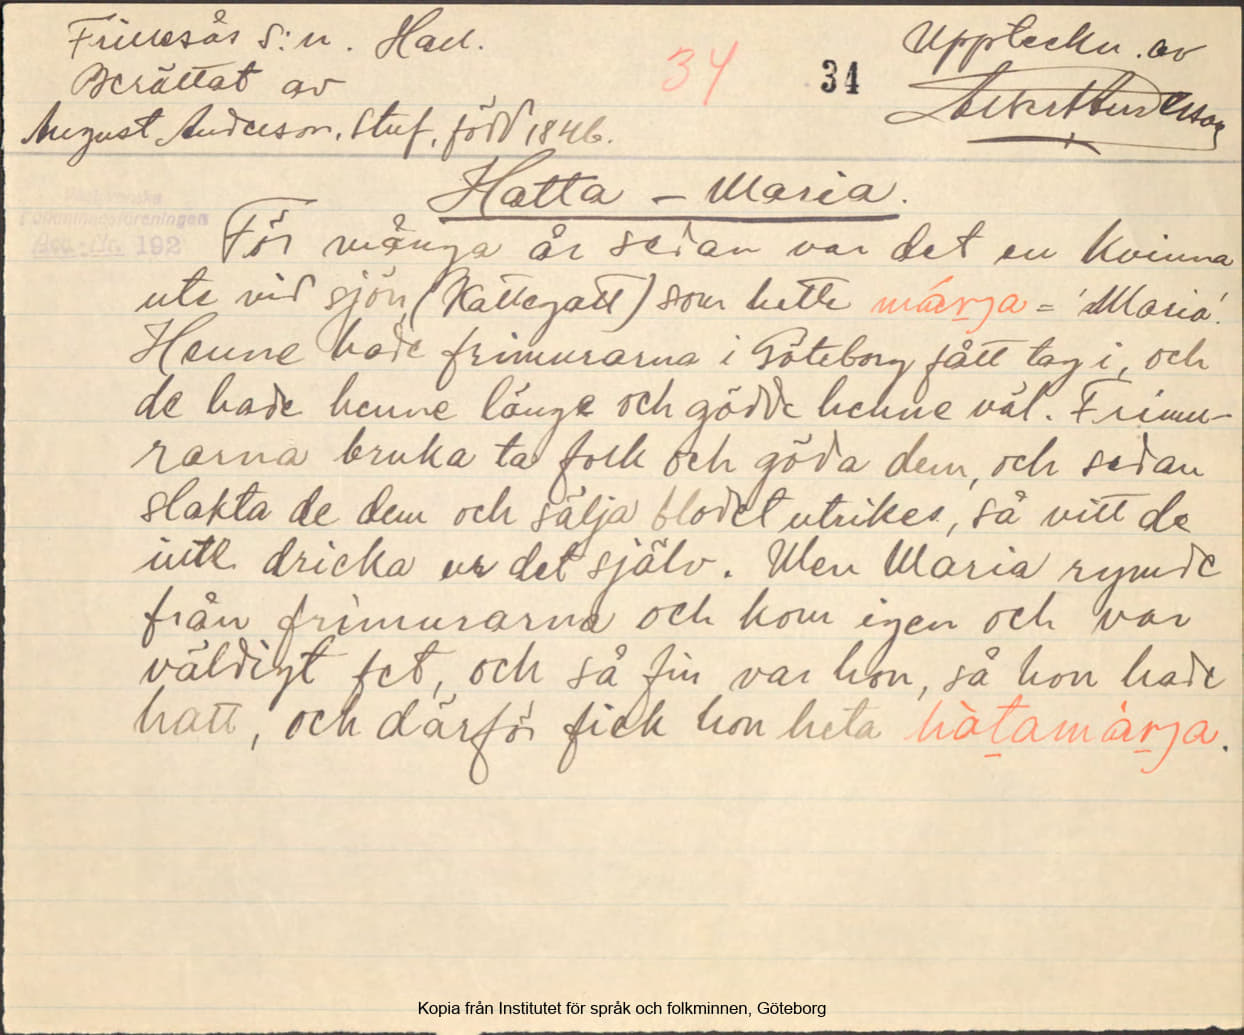 Frillesås s:n. Hall.
Berättat av
August Anderson, Stuf, född 1846.
34
34
Uppteckn. av
Albert Anderson
Hatta – Maria.
Folkminnesföreningen
192
För många år sedan var det en kvinna
ute vid sjön (Kattegatt) som hette márja = 'Maria'.
Henne hade frimurarna i Göteborg fått tag i, och
de hade henne länge och gödde henne väl. Frimu-
rarna bruka ta folk och göda dem, och sedan
slakta de dem och sälja blodet utrikes, så vitt de
inte dricka ur det själv. Men Maria rymde
från frimurarna och kom igen och var
väldigt fet, och så fin var hon, så hon hade
hatt, och därför fick hon heta hàtamàrja.
Kopia från Institutet för språk och folkminnen, Göteborg